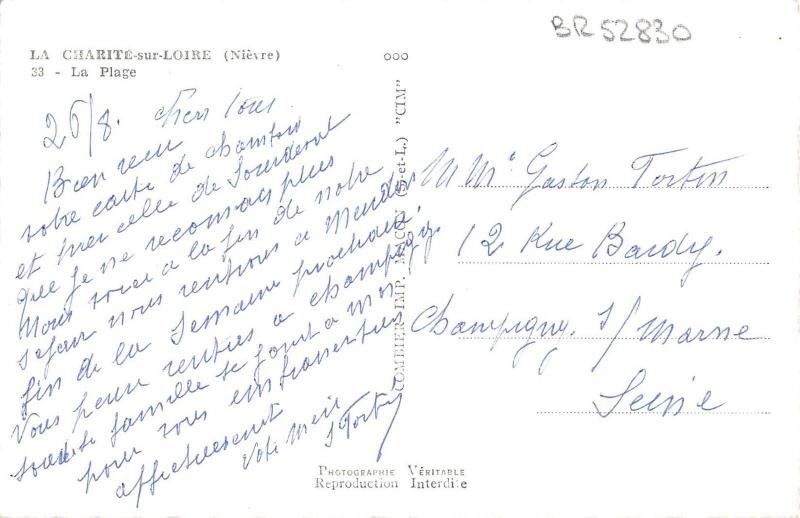 BR52830
LA CHARITÉ-sur-LOIRE (Nièvre)
33 - La Plage
26/8. chers tous
Bien reçu
votre carte de chambon
et hier celle de Sourdeval
que je ne reconnais plus
Nous voici a la fin de notre
séjour nous rentrons a Meudon
fin de la Semaine prochaine.
Vous pour rentrés a champigny
toute famille se joint a moi
pour vous embrasser tous
affectueusement
Votre Mère
Tortin
COMBIER IMP. MACON (S-et-L.) "CIM"
M Me Gaston Tortin
12 Rue Bardy.
Champigny. s/ Marne
Seine
PHOTOGRAPHIE VÉRITABLE
Reproduction Interdite